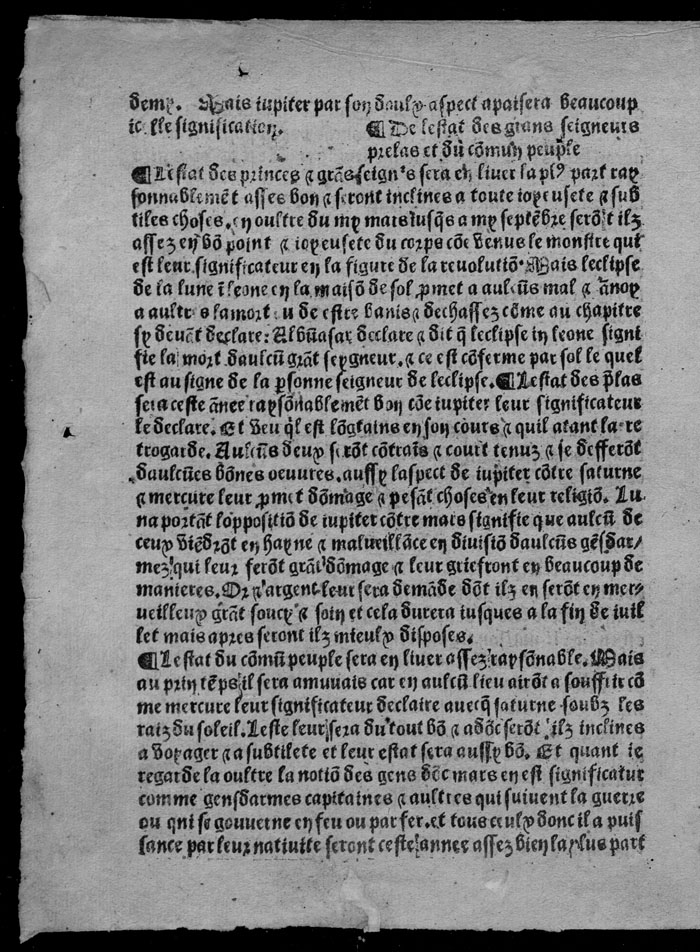 demy. Mais iupiter par son daulx aspect apaisera beaucoup
icelle signification. ¶ De lestat des grans seigneurs
prelas et du cōmun peuple
¶ Lestat des princes ⁊ grās seignrs sera en liuer la plꝰ part ray
sonnablemēt asses bon ⁊ seront inclines a toute ioyeusete ⁊ sub
tiles choses. en oultre du my mars iusq̄s a my septēbre serōt ilz
assez en bō point ⁊ ioyeusete du corps cōe venus le monstre qui
est leur significateur en la figure de la reuolutiō. Mais leclipse
de la lune ī leone en la maisō de sol p̱met a aulcūs mal ⁊ ānoy
a aultres la mort ou de estre banis ⁊ dechassez cōme au chapitre
sy deuāt declare: Albūasar declare ⁊ dit q̄ leclipse in leone signi
fie la mort daulcū grāt seygneur. ⁊ ce est cōferme par sol le quel
est au signe de la p̱sonne seigneur de leclipse. ¶ Lestat des p̄las
sera ceste ānee raysōnablemēt bon cōe iupiter leur significateur
le declare. Et veu q̄l est lōgtains en son cours ⁊ quil atant la re
trogarde. Aulcūs deux serōt cōtraīs ⁊ court tenuz ⁊ se defferōt
daulcūes bōnes oeuures. aussy laspect de iupiter cōtre saturne
⁊ mercure leur p̱met dōmage ⁊ pesāt choses en leur religiō. Lu
na portāt loppositiō de iupiter cōtre mars signifie que aulcū de
ceux viēdrōt en hayne ⁊ malueillāce en diuisiō daulcūs gēsdar/
mez qui leur ferōt grāt dōmage ⁊ leur griefront en beaucoup de
manieres. Or ⁊ argent leur sera demāde dōt ilz en serōt en mer⸗
ueilleux grāt soucy ⁊ soin et cela durera iusques a la fin de iuil
let mais apres seront ilz mieulx disposes.
¶ Lestat du cōmū peuple sera en liuer assez raysōnable. Mais
au prin tēps il sera amuuais car en aulcū lieu airōt a souffrir cō
me mercure leur significateur declaire auecq̄ saturne soubz les
raiz du soleil. Leste leur sera du tout bō ⁊ adōc serōt ilz inclines
a voyager ⁊ a subtilete et leur estat sera aussy bō. Et quant ie
regarde la oultre la notiō des gens dōc mars en est significatur
comme gensdarmes capitaines ⁊ aultres qui suiuent la guerre
ou qni se gouuerne en feu ou par fer. et tous ceulx donc il a puis
sance par leur natiuite seront ceste annee assez bien la plus part